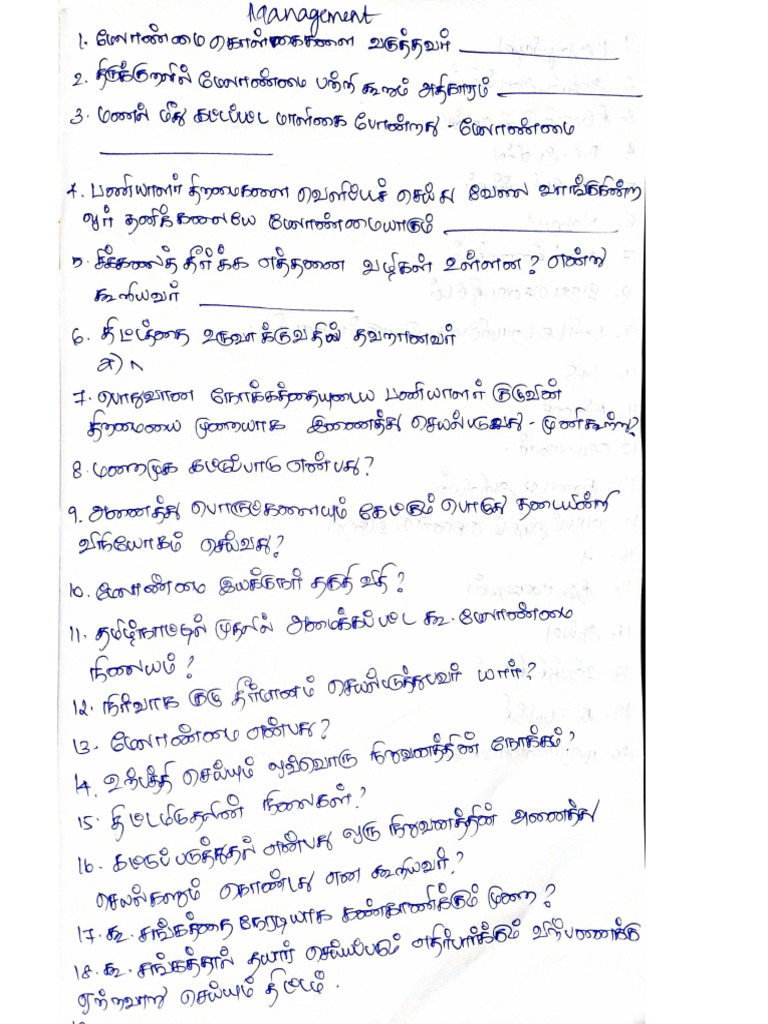 Management
1. மேலாண்மை கொள்கைகளை வகுத்தவர்
2. திருக்குறளில் மேலாண்மை பற்றி கூறும் அதிகாரம்
3. மணல் மீது கட்டப்பட்ட மாளிகை போன்றது - மேலாண்மை
4. பணியாளர் திறமைகளை வெளியேச் செய்து வேலை வாங்குகின்ற
ஓர் தனிக்கலையே மேலாண்மையாகும்
5. சிக்கலைத் தீர்க்க எத்தனை வழிகள் உள்ளன? என்று
கூறியவர்
6. திட்டத்தை உருவாக்குவதில் தவறானவர்
அ)
7. பொதுவான நோக்கத்தையுடைய பணியாளர் குழுவின்
திறமையை முறையாக இணைத்து செயல்படுவது - முனிகூற்று?
8. மறைமுக கட்டுப்பாடு என்பது?
9. அனைத்து பொருட்களையும் கேட்கும் பொழுது தடையின்றி
விநியோகம் செய்வது?
10. மேலாண்மை இயக்குநர் தகுதி விதி?
11. தமிழ்நாட்டில் முதலில் அமைக்கப்பட்ட கூ. மேலாண்மை
நிலையம்?
12. நிர்வாக குழு தீர்மானம் செயல்படுத்துபவர் யார்?
13. மேலாண்மை என்பது?
14. உற்பத்தி செய்யும் ஒவ்வொரு நிறுவனத்தின் நோக்கம்?
15. திட்டமிடுதலின் நிலைகள்?
16. கட்டுப்படுத்துதல் என்பது ஒரு நிறுவனத்தின் அனைத்து
செயல்களும் கொண்டது என கூறியவர்?
17. கூ. சங்கத்தை நேரடியாக கண்காணிக்கும் முறை?
18. கூ. சங்கத்தால் தயார் செய்யப்படும் எதிர்பார்க்கும் விற்பனைக்கு
ஏற்றவாறு செய்யும் திட்டம்.